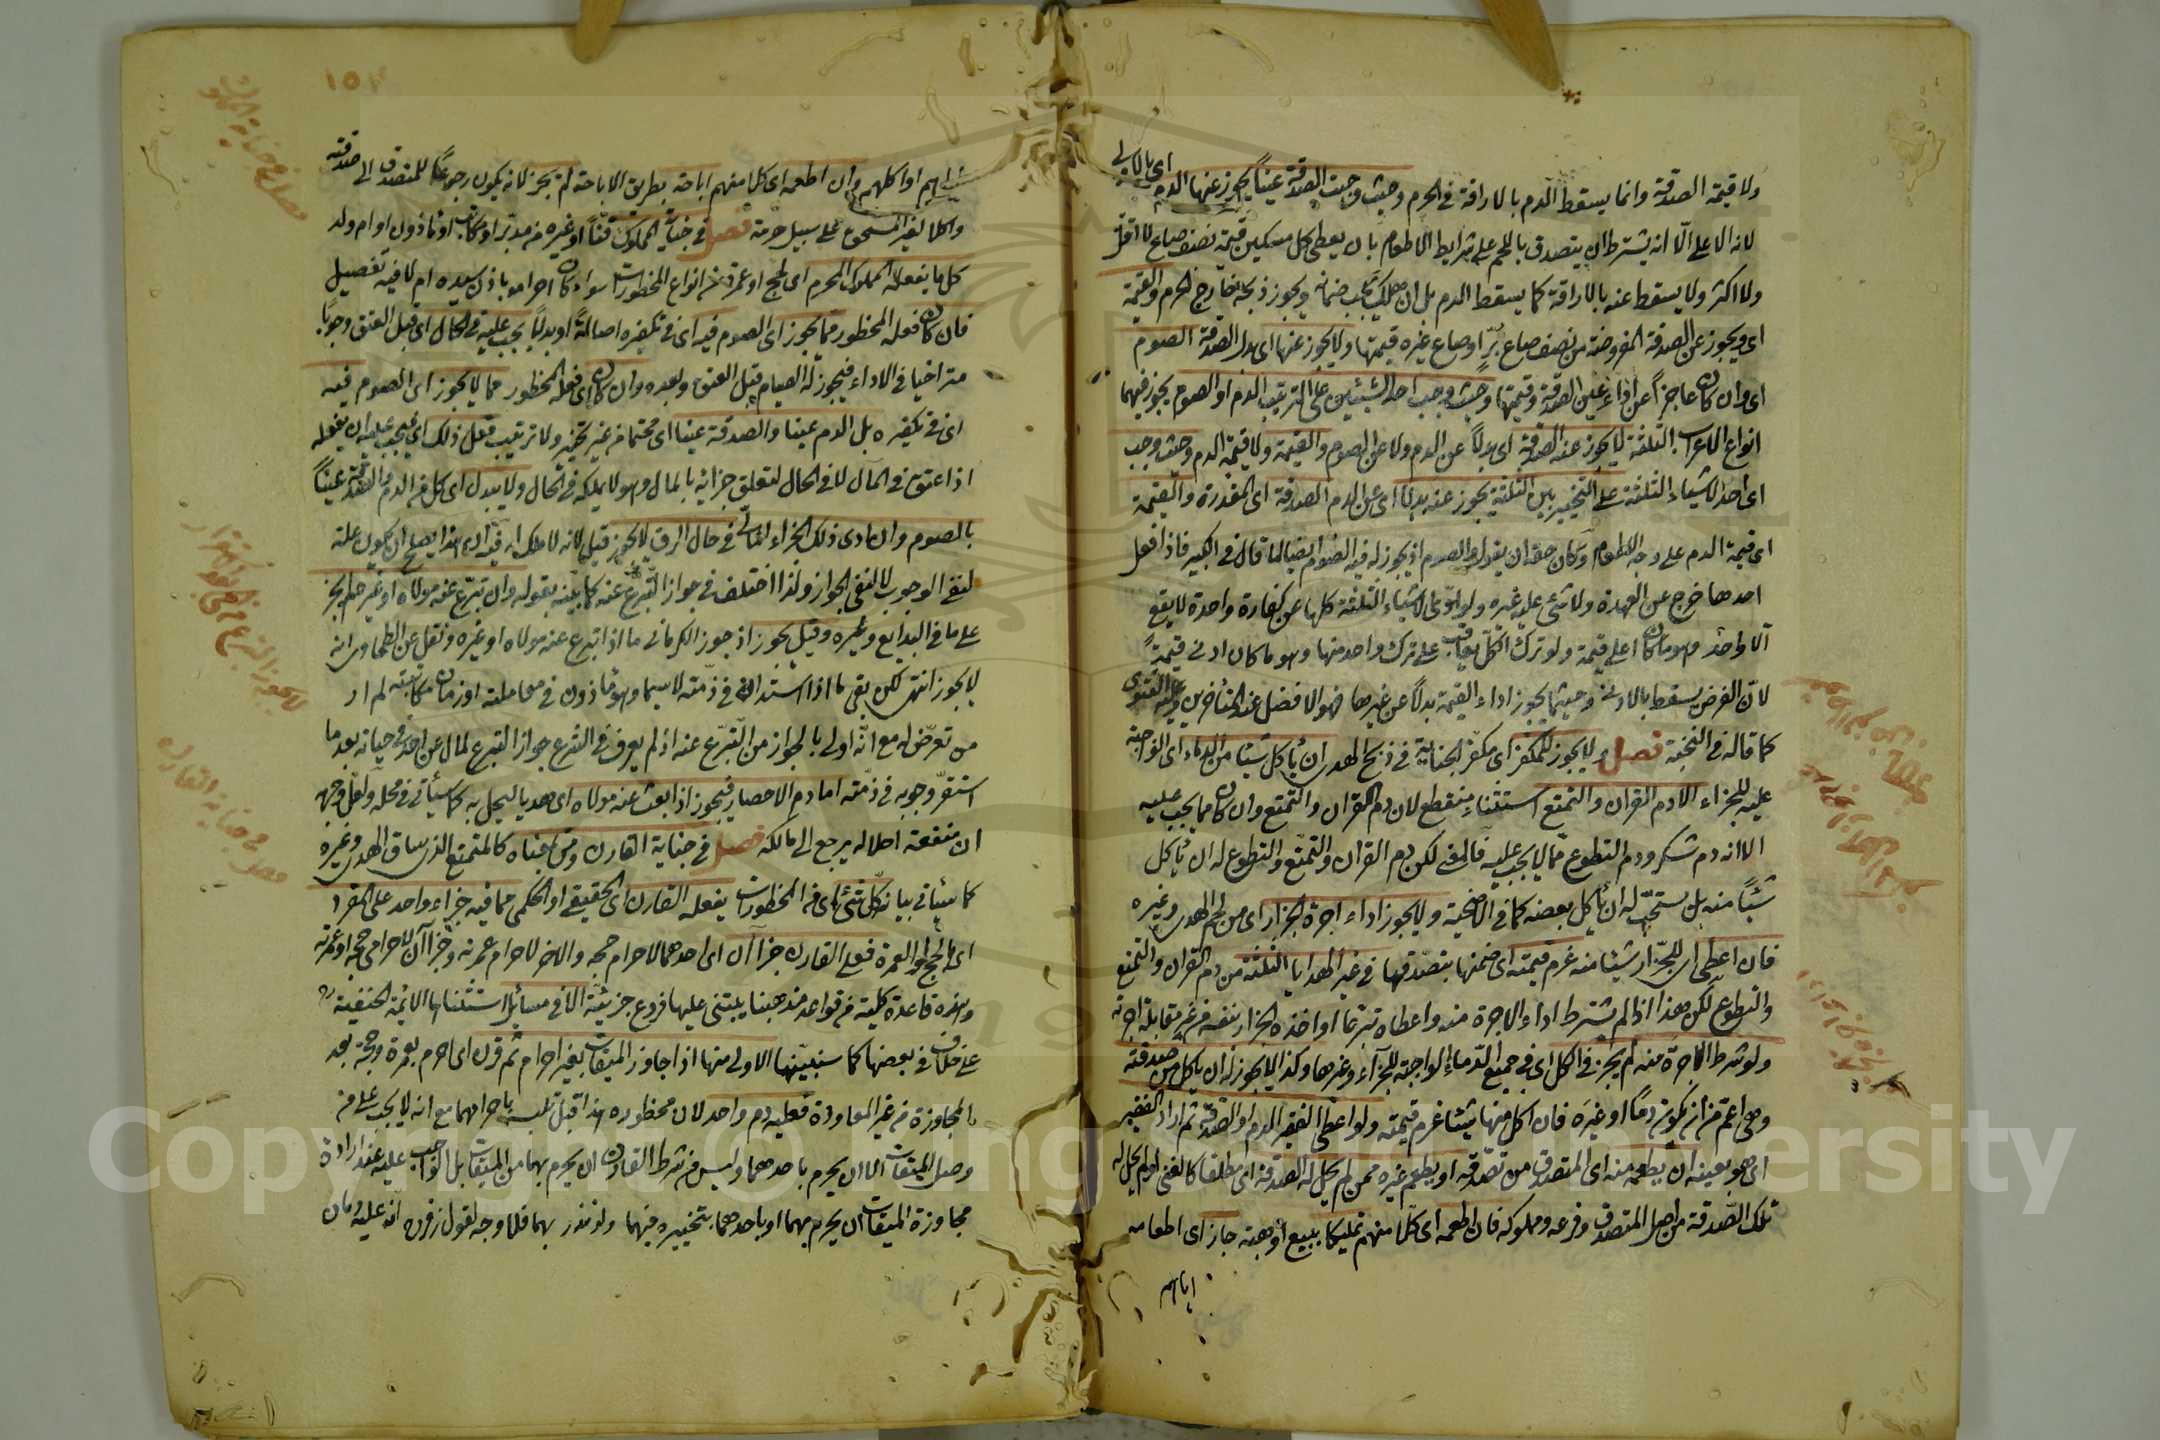 ولا قيمة الصدقة وانما يسقط الدم بالاراقة في الحرم وحيث وجبت الصدقة عينًا يجوز عنها الدم اي بالاولى
لانه الاعلى الّا انه يشترط ان يتصدق باللحم على شرايط الاطعام بان يعطى كل مسكين قيمة نصف صاع لا اقل
ولا اكثر ولا يسقط عنه بالاراقة كما يسقط الدم بل ان هلك يجب ضمانه ويجوز ذبحه خارج الحرم والقيمة
اي ويجوز عن الصدقة المفروضة من نصف صاع برّ او صاع غيره قيمتها ولا يجوز عنها اي بدل الصدقة الصوم
اي وان كان عاجزًا عن اداء عين الصدقة وقيمتها وحيث وجب احد الشيئين على الترتيب الدم او الصوم يجوز فيهما
انواع الثلثة لا يجوز عنه الصدقة اي بدلًا عن الدم ولا عن الصوم والقيمة ولا قيمة الدم وحيث وجب
اي احد الاشياء الثلثة على التخيير بين الثلثة يجوز عنه بدلًا اي عن الدم الصدقة اي المقدرة والقيمة
اي قيمة الدم على وجه الاطعام وكان حقه ان يقول والصوم اذ يجوز له فيه الصوم ايضا لما قال في الكبير فاذا فعل
احدها خرج عن العهدة ولا شيء عليه غيره ولو ادّى الاشياء الثلثة كلها عن كفارة واحدة لا يقع
الا واحد وهو ما كان اعلى قيمة ولو ترك الكل يعاقب على ترك واحد منها وهو ما كان ادنى قيمةً
لان الفرض يسقط بالادنى وحيثما يجوز اداء القيمة بدلًا عن غيرها فهو الافضل عند المتأخرين وعليه الفتوى
كما قاله في النخبة فصل ولا يجوز للمكفر اي مكفر الجناية في ذبح الهدي ان يأكل شيئا من الدماء اي الواجبة
عليه للجزاء الا دم القران والتمتع استثناء منقطع لان دم القران والتمتع وان كان مما يجب عليه
الا انه دم شكر ودم التطوع مما لا يجب عليه فالمعنى لكن دم القران والتمتع والتطوع له ان يأكل
شيئًا منه بل يستحبّ له ان يأكل بعضه كما في الاضحية ولا يجوز اداء اجرة الجزار اي من لحم الهدي وغيره
فان اعطى اي للجزّار شيئا منه غرم قيمته اي ضمنها يتصدق بها في غير الهدايا الثلثة من دم القران والتمتع
والتطوع لكن هذا اذا لم يشترط اداء الاجرة منه واعطاه تبرعًا او اخذه الجزار بنفسه من غير مقابلة اجرته
ولو شرط الاجرة منه لم يجز في الكل اي في جميع الدماء الواجبة للجزآء وغيرها وكذا لا يجوز له ان ياكل من صدقته
وهي اعم من ان تكون دمًا او غيره فان اكل منها شيئا غرم قيمته ولو اعطى الفقير الدم او الصدقة ثم اراد الفقير
اي هو بعينه ان يطعمه منه اي المتصدق من تصدقه او يطعم غيره ممن لم يحل له الصدقة اي مطلقا كالغني او لم يحل له
تلك الصّدقة من اصل المتصدق وفرعه ومملوكه فان اطعمه اي كلًّا منهم تمليكًا ببيع او هبة جاز اي اطعامه
اياهم
اياهم او اكلهم وان اطعمه اي كلا منهم اباحة بطريق الاباحة لم يجز لانه يكون رجوعًا للمتصدق الى صدقته
واكلا لغير المستحق على سبيل حرمة فصل في جناية المملوك قنًّا او غيره من مدبر او مكاتب او مأذون او ام ولد
كل ما يفعله المملوك المحرم اي لحج او عمرة من انواع المحظورات سواء كان احرامه باذن سيده ام لا فيه تفصيل
فان كان فعله المحظور مما يجوز اي الصوم فيه اي في تكفيره اصالةً او بدلًا يجب عليه في الحال اي قبل العتق وجوبًا
متراخيا في الاداء فيجوز له الصيام قبل العتق وبعده وان كان اي فعله المحظور مما لا يجوز اي الصوم فيه
اي في تكفيره بل الدم عينا والصدقة عينا اي محتما من غير تخيير ولا ترتيب فعل ذلك اي فيجب عليه ان يفعله
اذا عتق في المآل لا في الحال لتعلق جزائه بالمال وهو لا يملكه في الحال ولا يبدل اي كل من الدم والصدقة عينًا
بالصوم وان ادى ذلك الجزاء المالي في حال الرق لا يجوز قيل لانه لا ملك له فيه ان هذا يصلح ان يكون علة
لنفي الوجوب لا لنفي الجواز ولذا اختلف في جواز التبرع عنه كما بيّنه بقوله وان تبرع عنه مولاه او غيره لم يجز
على ما في البدايع وغيره وقيل يجوز اذ جوز الكرماني ما اذا تبرع عنه مولاه او غيره ونقل عن الطحاوي انه
لا يجوز انتهى لكن بقي ما اذا استدان في ذمته لا سيما وهو مأذون في معاملته او زمان مكاتبته لم ار
من تعرّض له مع انّه اولى بالجواز من التّبرع عنه اذ لم يعرف في الشرع جواز التبرع لمال عن احد في حياته بعد ما
استقرّ وجوبه في ذمّته اما دم الاحصار فيجوز اذا بعث عنه مولاه اي هديا ليحل به كما سيأتي في محله ولعل وجهه
ان منفعة احلاله يرجع الى مالكه فصل في جناية القارن ومن بمعناه كالمتمتع الذي ساق الهدي وغيره
كما سيأتي بيانه كل شيء اي من المحظورات يفعله القارن اي الحقيقي او الحكمي مما فيه جزاء واحد على المفرد
اي بالحج او العمرة فعلى القارن جزاآن اي احدهما لاحرام حجه والاخر لاحرام عمرته وجزاآن لاحرامي حجه وعمرته
وهذه قاعدة كلية من قواعد مذهبنا يبتنى عليها فروع جزئيّة الا في مسائل استثناها الائمة الحنفية
على خلاف في بعضها كما سنبيّنها الاولى منها اذا جاوز الميقات بغير احرام ثم قرن اي احرم بعمرة وحجة بعد
المجاوزة من غير المعاودة فعليه دم واحد لان محظوره هذا قبل تلبسه باحرامهما مع انه لا يجب على من
وصل الميقات الا ان يحرم باحدهما وليس من شرط القارن ان يحرم بهما من الميقات بل الواجب عليه عند ارادة
مجاوزة الميقات ان يحرم بهما او باحدهما بتخييره فيهما ولو نذر بهما فلا وجه لقول زفر انّه عليه دمان
فصل في جناية المملوك
فصل في جناية القارن